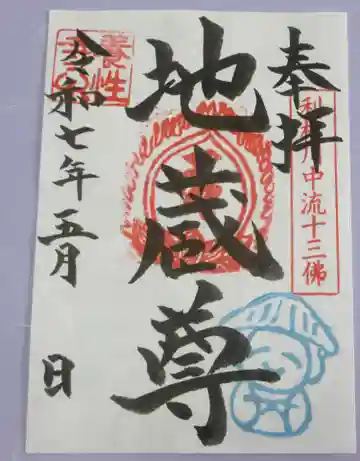 奉拝
利根川中流十三佛
地蔵尊
令和七年五月 日
養性寺